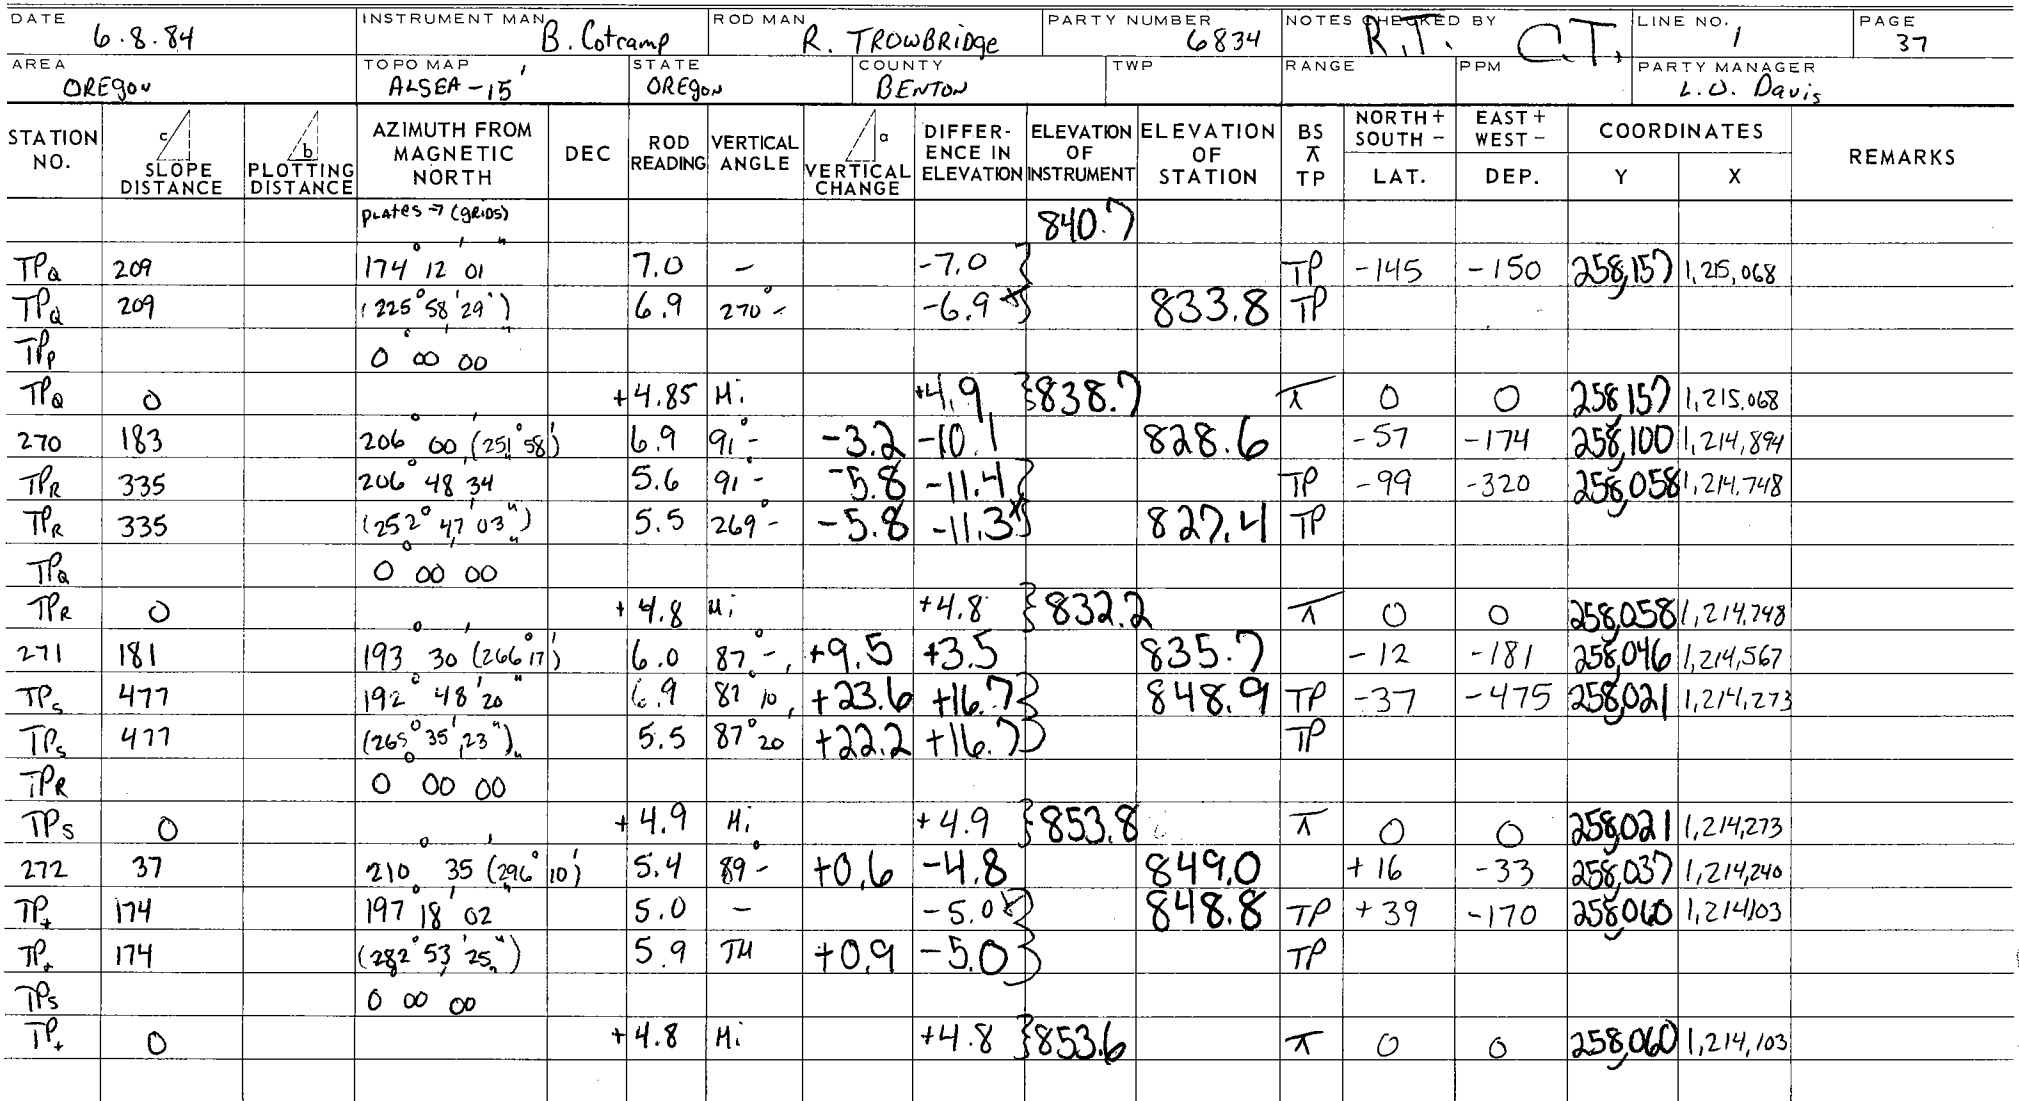 DATE 6.8.84 INSTRUMENT MAN B. Cotcamp ROD MAN R. TROWBRIDge PARTY NUMBER 6834 NOTES CHECKED BY R.T. C.T. LINE NO. 1 PAGE 37
AREA OREgon TOPO MAP ALSEA-15' STATE OREgon COUNTY BENTON TWP RANGE PPM PARTY MANAGER L.O. Davis
STATION NO. c SLOPE DISTANCE b PLOTTING DISTANCE AZIMUTH FROM MAGNETIC NORTH DEC ROD READING VERTICAL ANGLE a VERTICAL CHANGE DIFFER-ENCE IN ELEVATION ELEVATION OF INSTRUMENT ELEVATION OF STATION BS ⊼ TP NORTH + SOUTH - LAT. EAST + WEST - DEP. COORDINATES Y X REMARKS
PLATES → (GRIDS) 840.7
TPQ 209 174° 12' 01" 7.0 - -7.0 } TP -145 -150 258,157 1,215,068
TPQ 209 (225° 58' 29") 6.9 270°- -6.9 } 833.8 TP
TPP 0° 00' 00"
TPQ 0 +4.85 Hi +4.9 }838.7 ⊼ 0 0 258,157 1,215,068
270 183 206° 00' (251° 58') 6.9 91°- -3.2 -10.1 828.6 -57 -174 258,100 1,214,894
TPR 335 206° 48' 34" 5.6 91°- -5.8 -11.4 } TP -99 -320 258,058 1,214,748
TPR 335 (252° 47' 03") 5.5 269°- -5.8 -11.3 } 827.4 TP
TPQ 0° 00' 00"
TPR 0 +4.8 Hi +4.8 }832.2 ⊼ 0 0 258,058 1,214,748
271 181 193° 30' (266° 17') 6.0 87°- +9.5 +3.5 835.7 -12 -181 258,046 1,214,567
TPS 477 192° 48' 20" 6.9 87° 10' +23.6 +16.7 } 848.9 TP -37 -475 258,021 1,214,273
TPS 477 (265° 35' 23") 5.5 87° 20' +22.2 +16.7 } TP
TPR 0° 00' 00"
TPS 0 +4.9 Hi +4.9 }853.8 ⊼ 0 0 258,021 1,214,273
272 37 210° 35' (296° 10') 5.4 89°- +0.6 -4.8 849.0 +16 -33 258,037 1,214,240
TPt 174 197° 18' 02" 5.0 - -5.0 } 848.8 TP +39 -170 258,060 1,214,103
TPt 174 (282° 53' 25") 5.9 TH +0.9 -5.0 } TP
TPS 0° 00' 00"
TPt 0 +4.8 Hi +4.8 }853.6 ⊼ 0 0 258,060 1,214,103